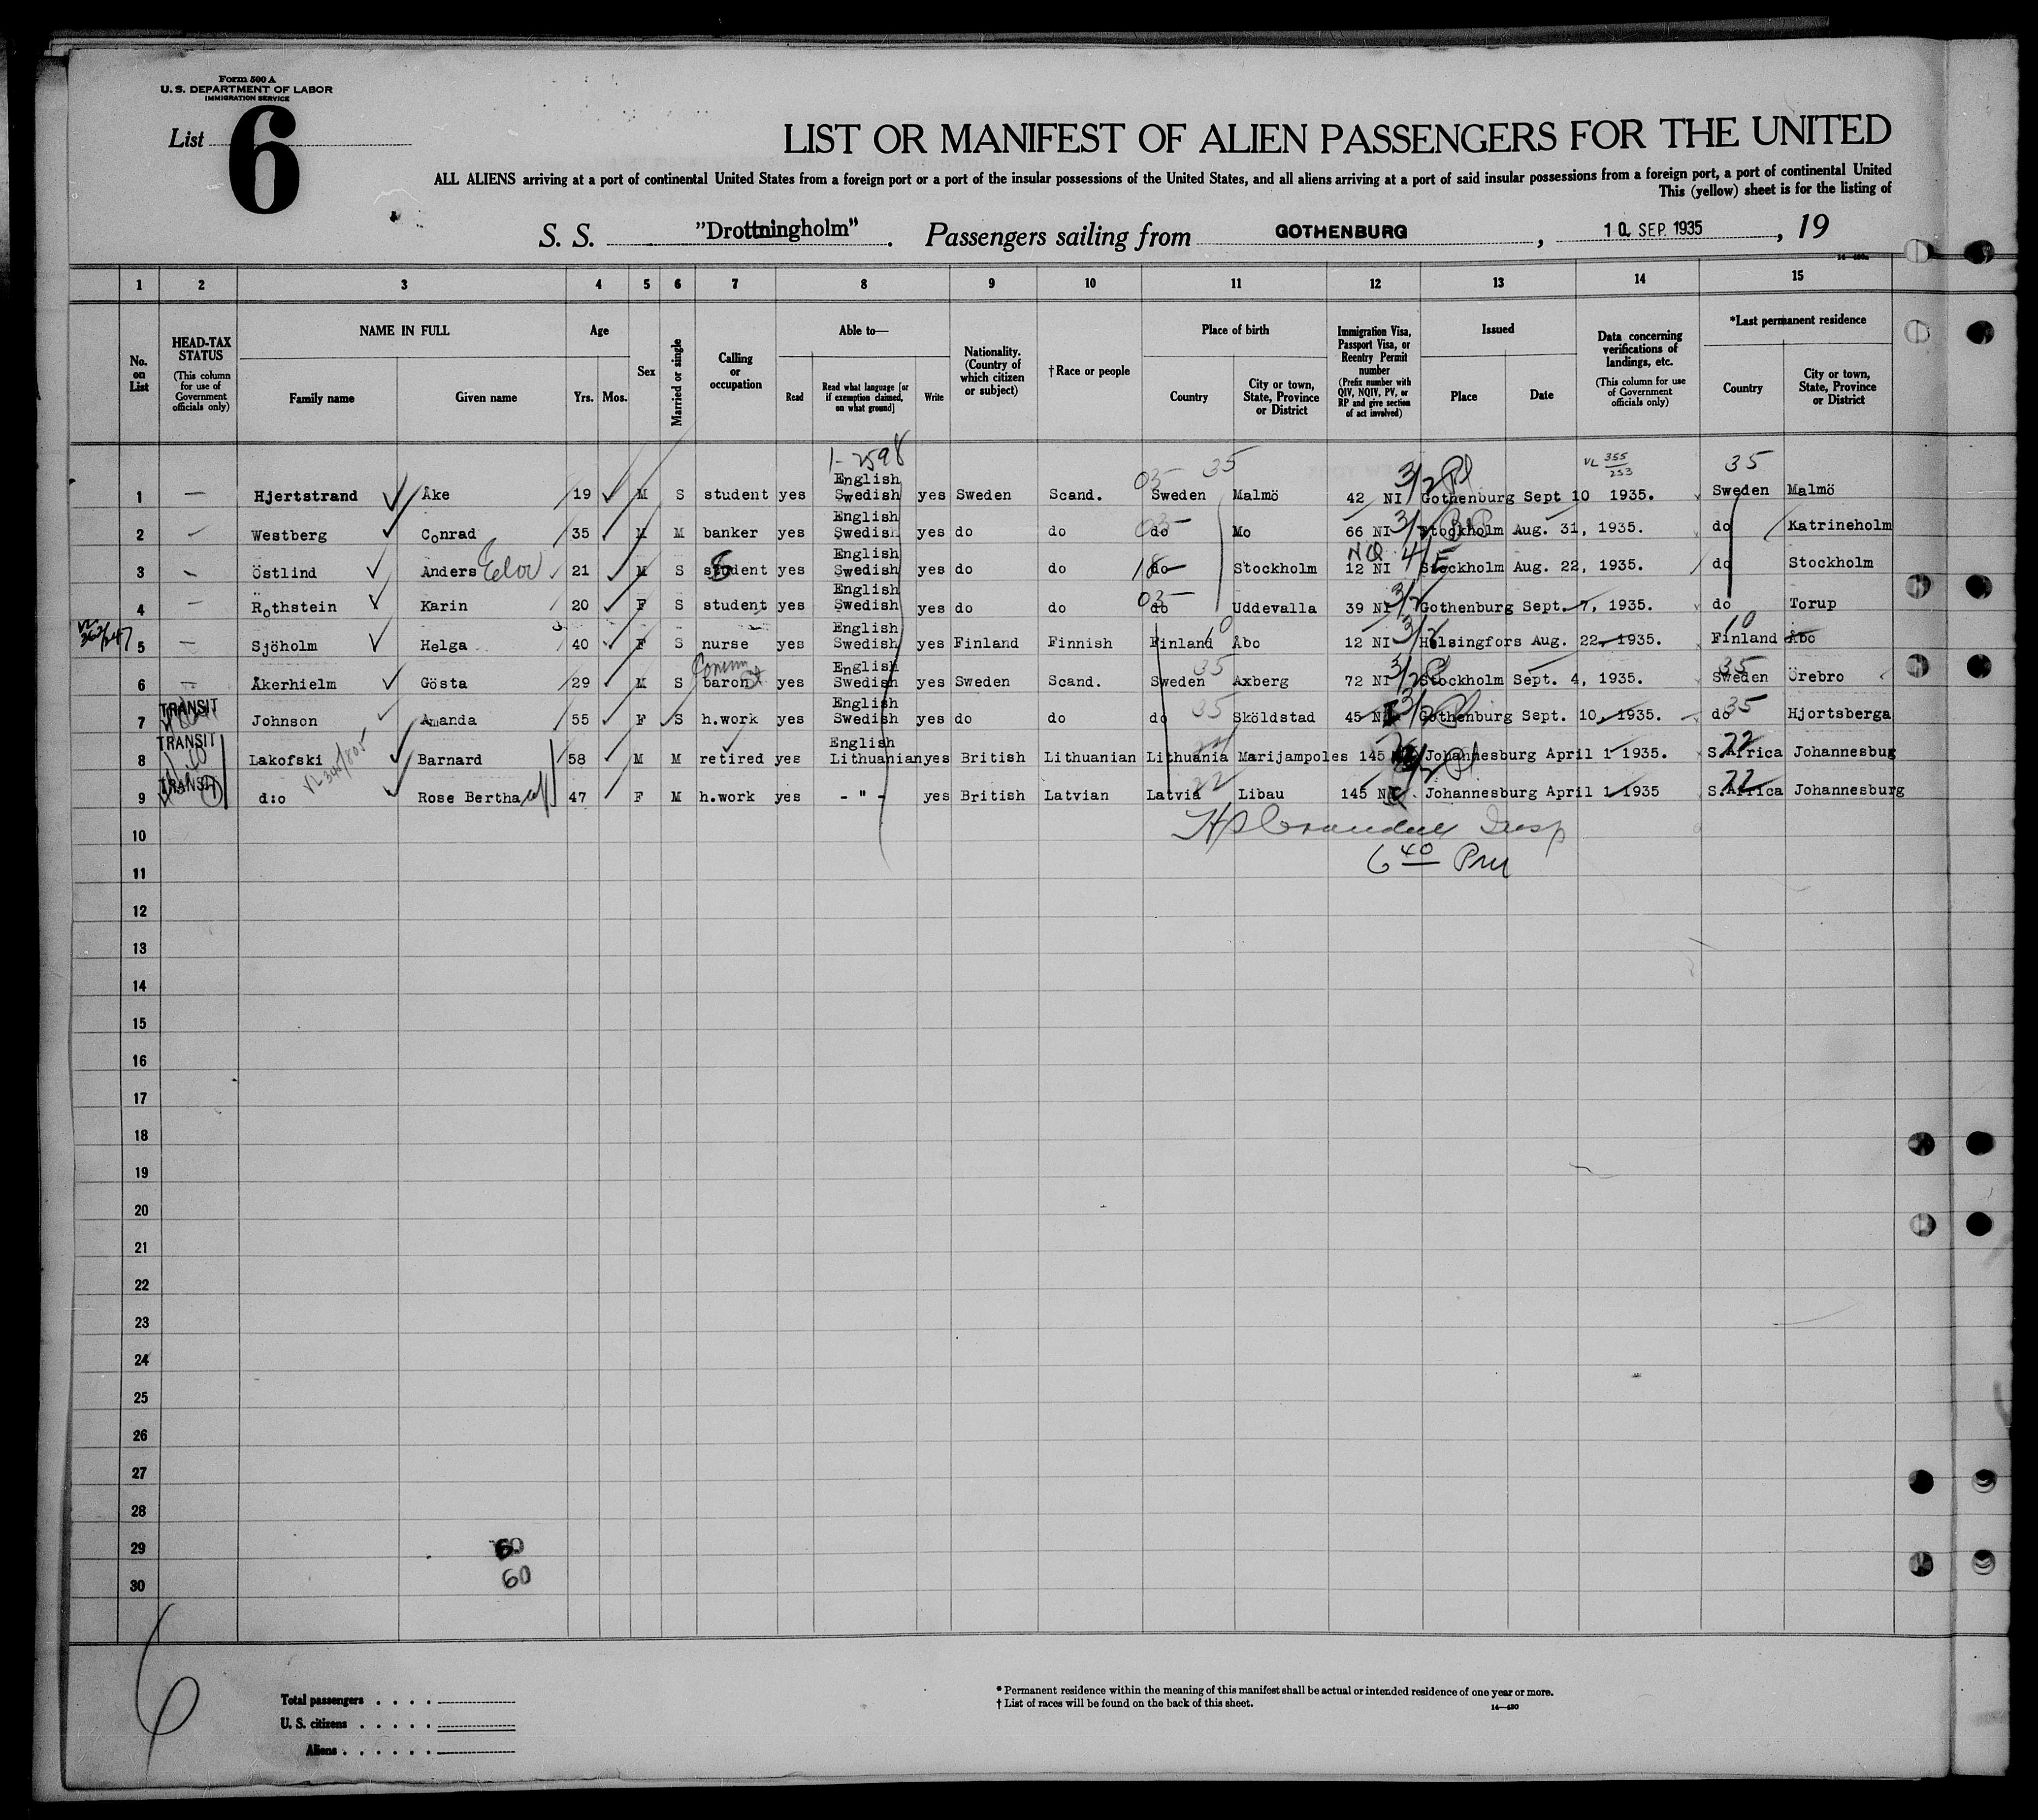 Form 500 A
U. S. DEPARTMENT OF LABOR
IMMIGRATION SERVICE
List 6
LIST OR MANIFEST OF ALIEN PASSENGERS FOR THE UNITED
ALL ALIENS arriving at a port of continental United States from a foreign port or a port of the insular possessions of the United States, and all aliens arriving at a port of said insular possessions from a foreign port, a port of continental United
This (yellow) sheet is for the listing of
S. S. "Drottningholm". Passengers sailing from GOTHENBURG, 10 SEP. 1935, 19
1 2 3 4 5 6 7 8 9 10 11 12 13 14 15
No. on List
HEAD-TAX STATUS (This column for use of Government officials only)
NAME IN FULL
Family name Given name
Age
Yrs. Mos.
Sex
Married or single
Calling or occupation
Able to—
Read Read what language [or if exemption claimed, on what ground] Write
Nationality. (Country of which citizen or subject)
†Race or people
Place of birth
Country City or town, State, Province or District
Immigration Visa, Passport Visa, or Reentry Permit number (Prefix number with QIV, NQIV, PV, or RP and give section of act involved)
Issued
Place Date
Data concerning verifications of landings, etc. (This column for use of Government officials only)
*Last permanent residence
Country City or town, State, Province or District
1-2598
03 35 3/2 VL 355/253 35
1 — Hjertstrand Åke 19 M S student yes English Swedish yes Sweden Scand. Sweden Malmö 42 NI Gothenburg Sept 10 1935. Sweden Malmö
2 Westberg Conrad 35 M M banker yes English Swedish yes do do do Mo 66 NI 3/2 Stockholm Aug. 31, 1935. do Katrineholm
3 Östlind Anders 21 M S student yes English Swedish yes do do do Stockholm 12 NI NQ 4/E Stockholm Aug. 22, 1935. do Stockholm
4 Rothstein Karin 20 F S student yes English Swedish yes do do 03 do Uddevalla 39 NI 3/2 Gothenburg Sept. 7, 1935. do Torup
5 — Sjöholm Helga 40 F S nurse yes English Swedish yes Finland Finnish Finland 10 Åbo 12 NI 3/2 Helsingfors Aug. 22, 1935. Finland 10 Åbo
6 Åkerhielm Gösta 29 M S baron yes English Swedish yes Sweden Scand. Sweden 35 Axberg 72 NI 3/2 Stockholm Sept. 4, 1935. Sweden 35 Örebro
TRANSIT
7 Johnson Amanda 55 F S h.work yes English Swedish yes do do do 35 Sköldstad 45 Gothenburg Sept. 10, 1935. do 35 Hjortsberga
TRANSIT
8 Lakofski Barnard 58 M M retired yes English Lithuanian yes British Lithuanian Lithuania Marijampoles 145 Johannesburg April 1 1935. S.Africa 22 Johannesbug
TRANSIT
9 d:o Rose Bertha 47 F M h.work yes - " - yes British Latvian Latvia 22 Libau 145 Johannesburg April 1 1935 S.Africa 22 Johannesburg
10
6 40 Pm
11
12
13
14
15
16
17
18
19
20
21
22
23
24
25
26
27
28
29 60
30 60
6
Total passengers
U. S. citizens
Aliens
* Permanent residence within the meaning of this manifest shall be actual or intended residence of one year or more.
† List of races will be found on the back of this sheet.
14—430